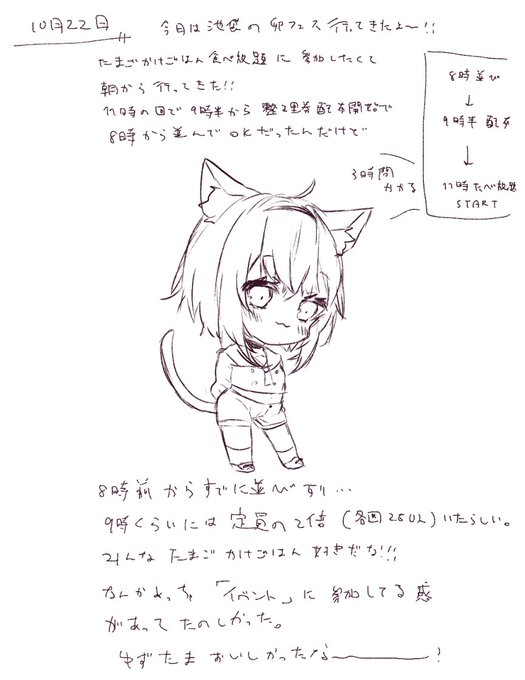 10月22日
今日は池袋の卵フェス行ってきたよ〜!!
たまごかけごはん食べ放題に参加したくて
朝から行ってきた!!
11時の回で9時半から整理券配布開始で
8時から並んでOKだったんだけど
8時並び
↓
9時半配布
↓
11時たべ放題
START
3時間
かかる
8時前からすでに並びすり…
9時くらいには定員の2倍(各回250人)いたらしい。
みんなたまごかけごはん好きだな!!!
なんかめっちゃ「イベント」に参加してる感
があってたのしかった。
ゆずたまおいしかったな〜!